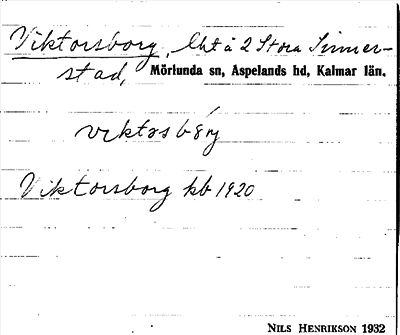 Viktorsborg, lht å 2 Stora Sinner-
stad, Mörlunda sn, Aspelands hd, Kalmar län.
Viktorsborg kb 1920
NILS HENRIKSON 1932